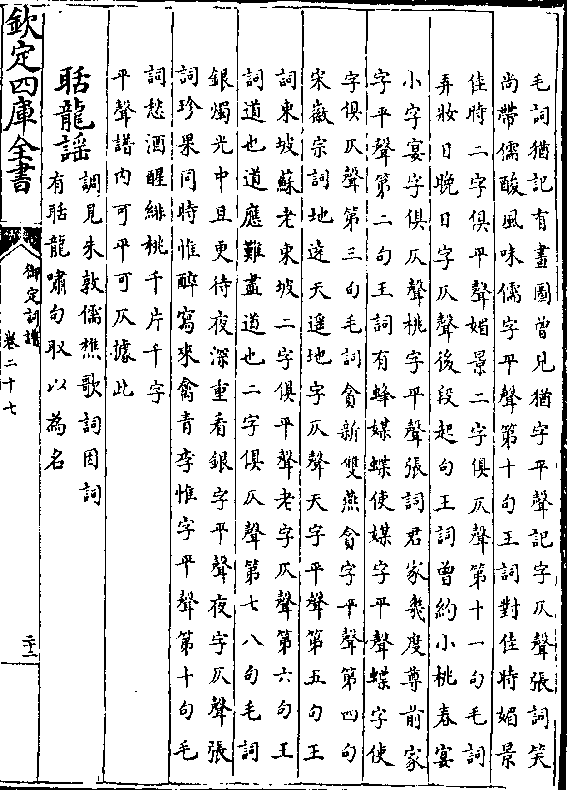 毛詞猶記有畫圖曾見猶字平聲記字仄聲張詞笑
尚帶儒酸風味儒字平聲第十句王詞對佳時媚景
佳時二字俱平聲媚景二字俱仄聲第十一句毛詞
弄妝日晚日字仄聲後段起句王詞曾約小桃春宴
小字宴字俱仄聲桃字平聲張詞君家幾度尊前家
字平聲第二句王詞有蜂媒蝶使媒字平聲蝶字使
字俱仄聲第三句毛詞貪新雙燕貪字平聲第四句
宋徽宗詞地遠天遥地字仄聲天字平聲第五句王
詞東坡蘇老東坡二字俱平聲老字仄聲第六句王
詞道也道應難盡道也二字俱仄聲第七八句毛詞
銀燭光中且更待夜深重看銀字平聲夜字仄聲張
詞珍果同時惟醉寫來禽青李惟字平聲第十句毛
詞愁酒醒緋桃千片千字
平聲譜内可平可仄據此
聒龍謡
調見朱敦儒樵歌詞因詞
有聒龍嘯句取以為名
欽定四庫全書
御定詞譜
卷二十七
二十二